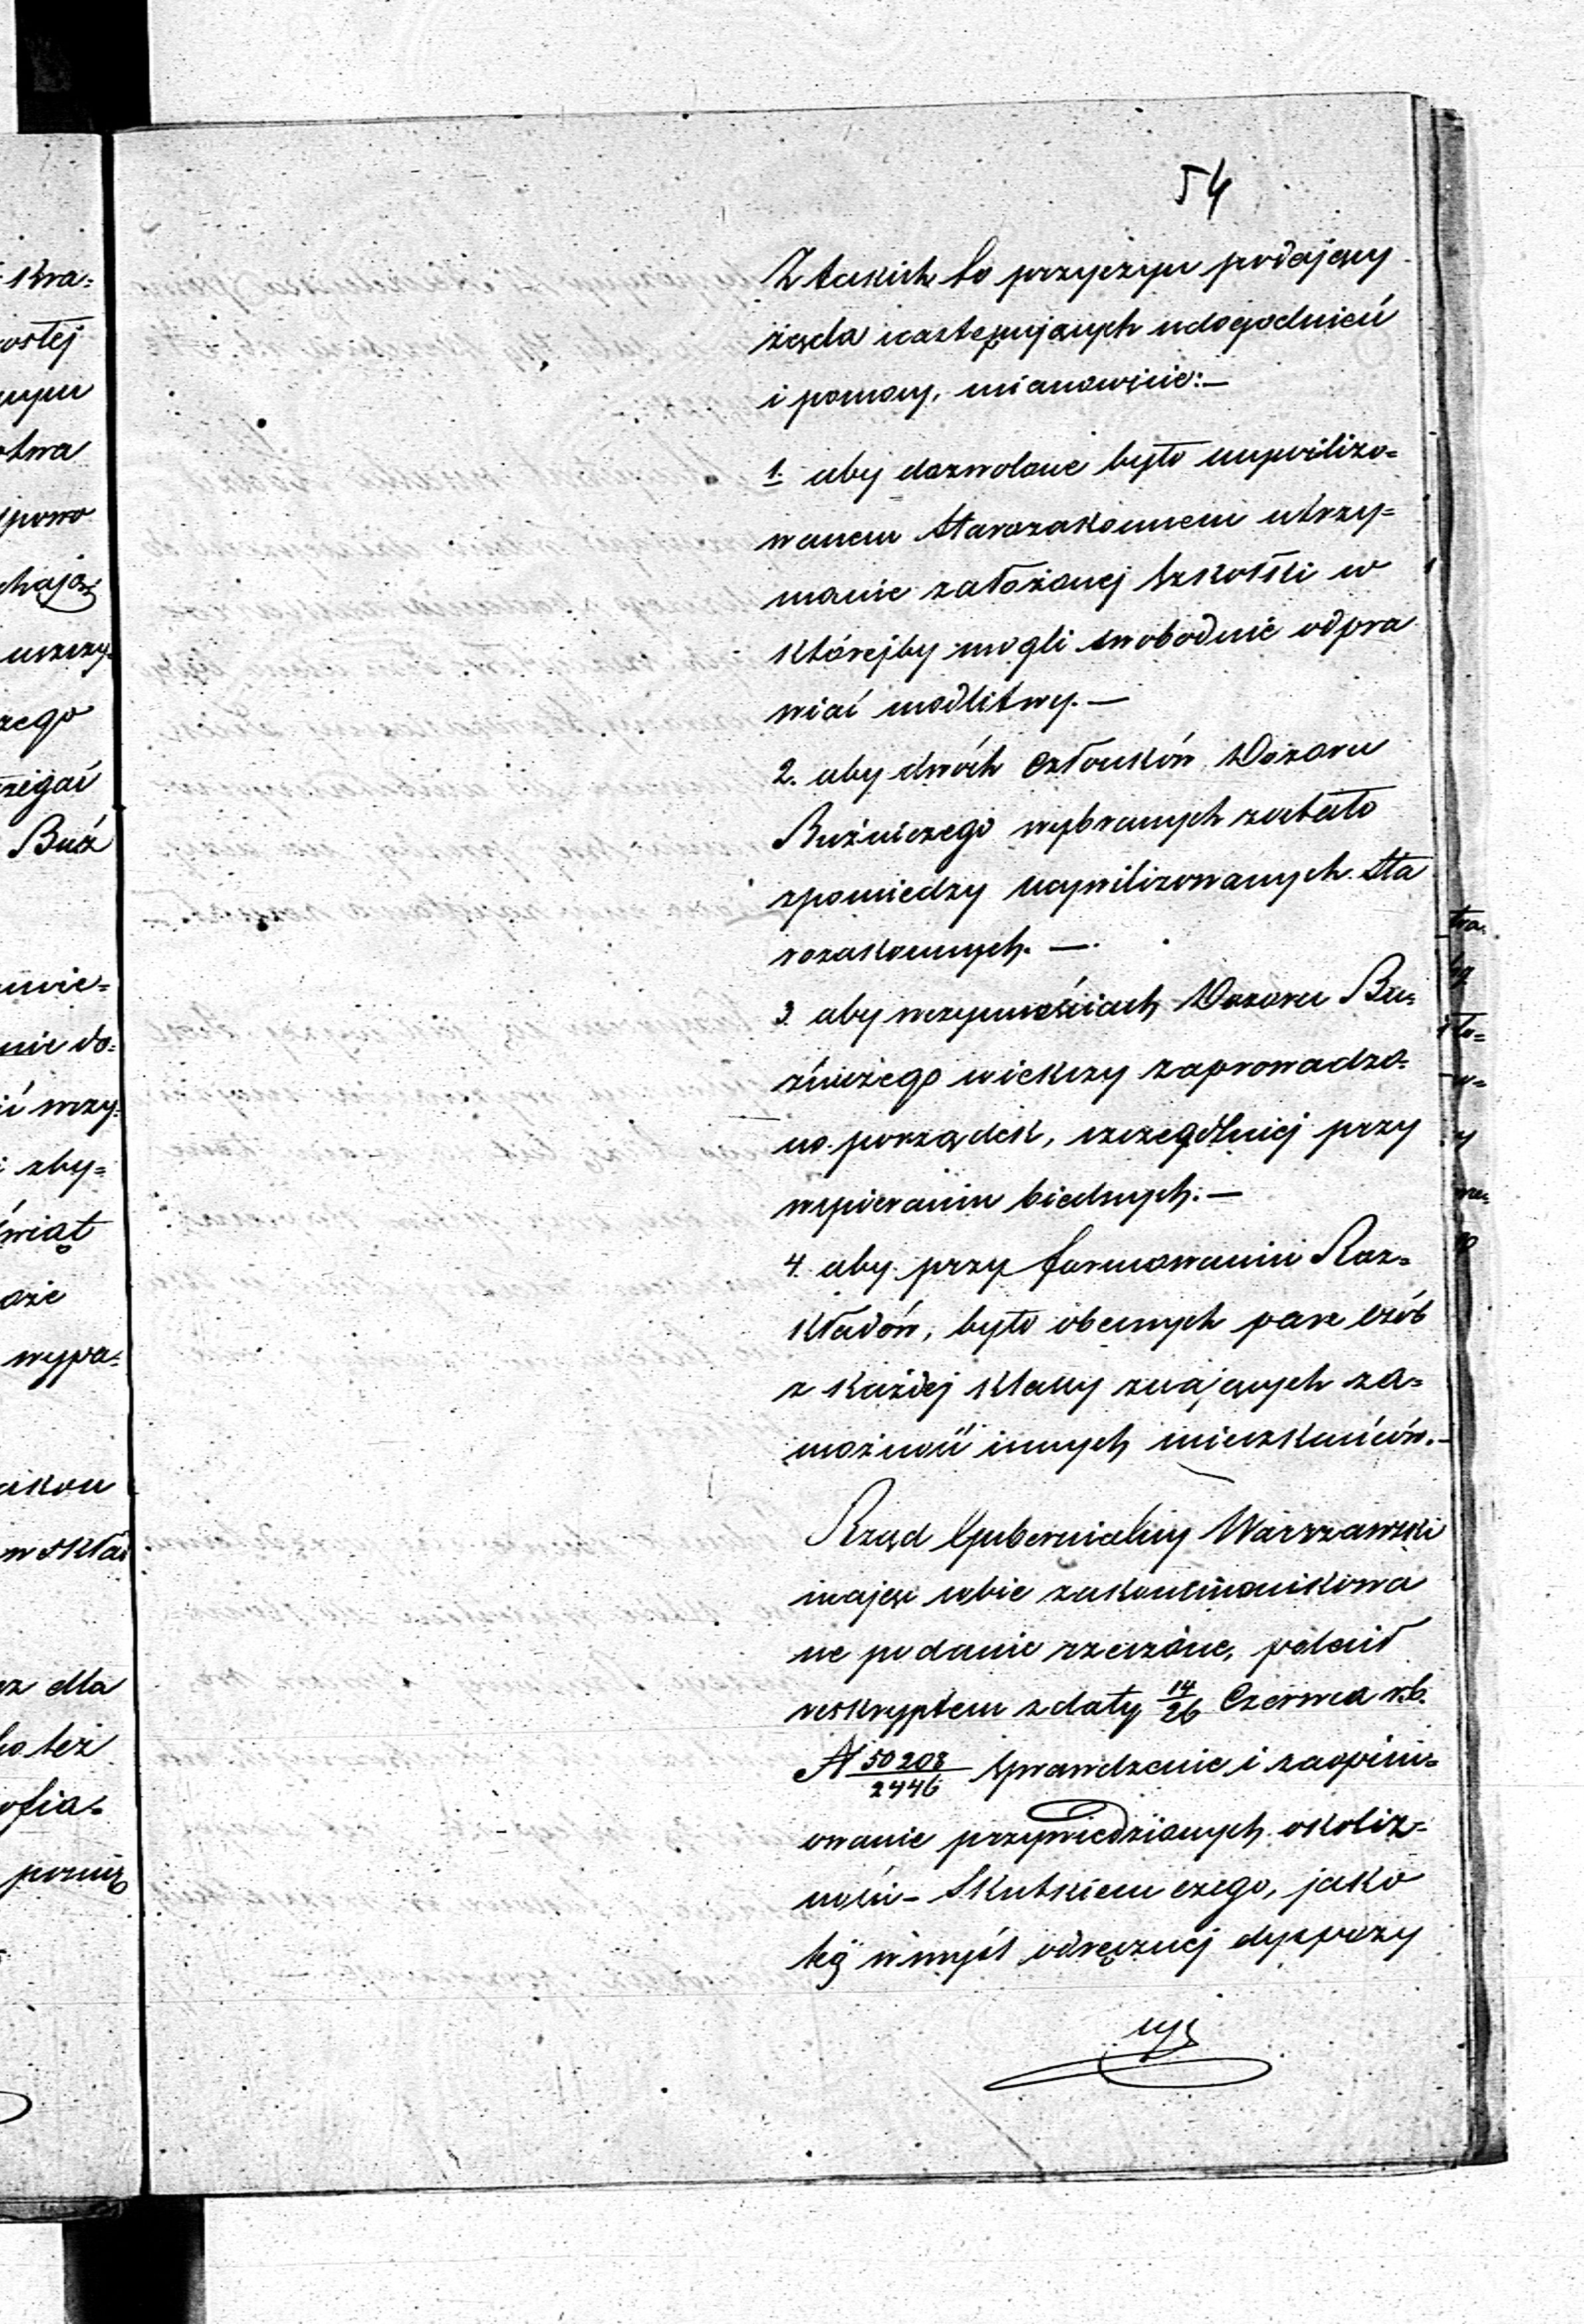 54
Z takich to przyczyn podający
żąda następujących udogodnień
i pomocy, mianowicie:—
1. aby dozwolone było ucywilizo=
wanem Starozakonnem utrzy=
manie założonej Szkółki w
którejby mogli swobodnie odpra
wiać modlitwy.—
2. aby dwóch Członków Dozoru
Bużniczego wybranych zostało
zpomiedzy ucywilizowanych Sta
rozakonnych.—
3. aby wczynnościach Dozoru Bu=
żniczego wiekszy zaprowadzo=
no porządek, szczególniej przy
wspieraniu biednych.—
4. aby przy formowaniu Roz=
kładów, było obecnych parę osób
z każdej klassy znających za=
możność innych mieszkańców.—
Rząd Gubernialny Warszawski
mając sobie zakommunikowa
ne podanie rzeczone, polecił
reskryptem z daty 14/26 Czerwca r.b.
N 50208/2446 sprawdzenie i zaopini=
owanie przywiedzionych okolicz=
ności – Skutkiem czego, jako
też w myśl odręcznej dyspozy
cyi
kra=
ostej
otwa
powo
chają
zego
Buż
mie=
nie do=
zby=
świąt
oże
wypa=
akon
w skła
dla
też
ofia=